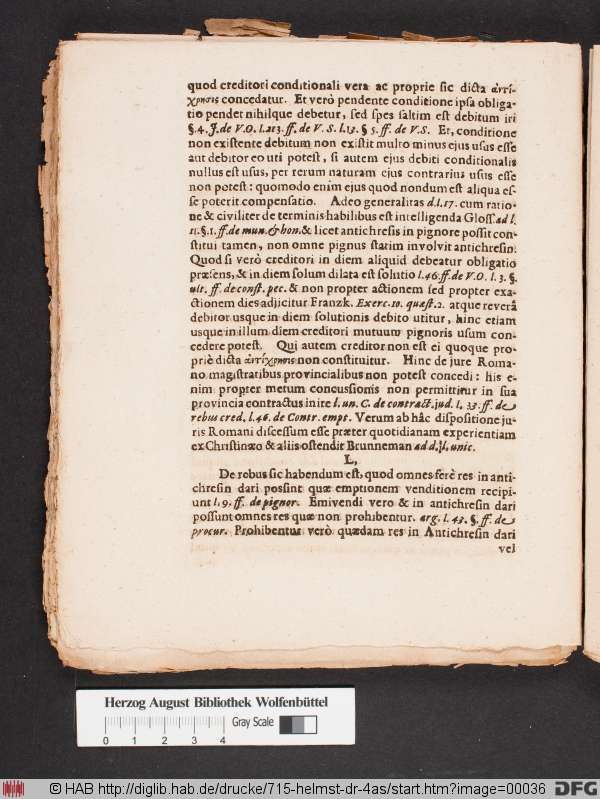 quod creditori conditionali vera ac proprie sic dicta ἀντί
χρησις concedatur. Et verò pendente conditione ipsa obliga-
tio pendet nihilque debetur, sed spes saltim est debitum iri
§.4. J. de V.O. l.213. ff. de V.S. l.13. § 5. ff. de V.S. Et, conditione
non existente debitum non existit multo minus ejus usus esse
aut debitor eo uti potest, si autem ejus debiti conditionalis
nullus est usus, per rerum naturam ejus contrarius usus esse
non potest: quomodo enim ejus quod nondum est aliqua es-
se poterit compensatio. Adeo generalitas d.l.17. cum ratio-
ne & civiliter de terminis habilibus est intelligenda Gloss. ad l.
11.§.1. ff. de mun. & hon. & licet antichresis in pignore possit con-
stitui tamen, non omne pignus statim involvit antichresin.
Quod si verò creditori in diem aliquid debeatur obligatio
præsens, & in diem solum dilata est solutio l.46. ff. de V.O. l. 3. §.
ult. ff. de const. pec. & non propter actionem sed propter exa-
ctionem dies adjicitur Franzk. Exerc. 10. quæst. 2. atque reverâ
debitor usque in diem solutionis debito utitur, hinc etiam
usque in illum diem creditori mutuum pignoris usum con-
cedere potest. Qui autem creditor non est ei quoque pro-
priè dicta ἀντίχρησις non constituitur. Hinc de jure Roma-
no magistratibus provincialibus non potest concedi: his e-
nim propter metum concussionis non permittitur in sua
provincia contractus inire l. un. C. de contract. jud. l. 33. ff. de
rebus cred. l. 46. de Contr. empt. Verum ab hâc dispositione ju-
ris Romani discessum esse præter quotidianam experientiam
ex Christinæo & aliis ostendit Brunneman ad d. l. unic.
L.
De robus sic habendum est, quod omnes ferè res in anti-
chresin dari possint quæ emptionem venditionem recipi-
unt l. 9. ff. de pignor. Emivendi vero & in antichresin dari
possunt omnes res quæ non prohibentur. arg. l. 43. §. ff. de
procur. Prohibentur verò quædam res in Antichresin dari
vel
Herzog August Bibliothek Wolfenbüttel
0 1 2 3 4 Gray Scale
© HAB http://diglib.hab.de/drucke/715-helmst-dr-4as/start.htm?image=00036
DFG